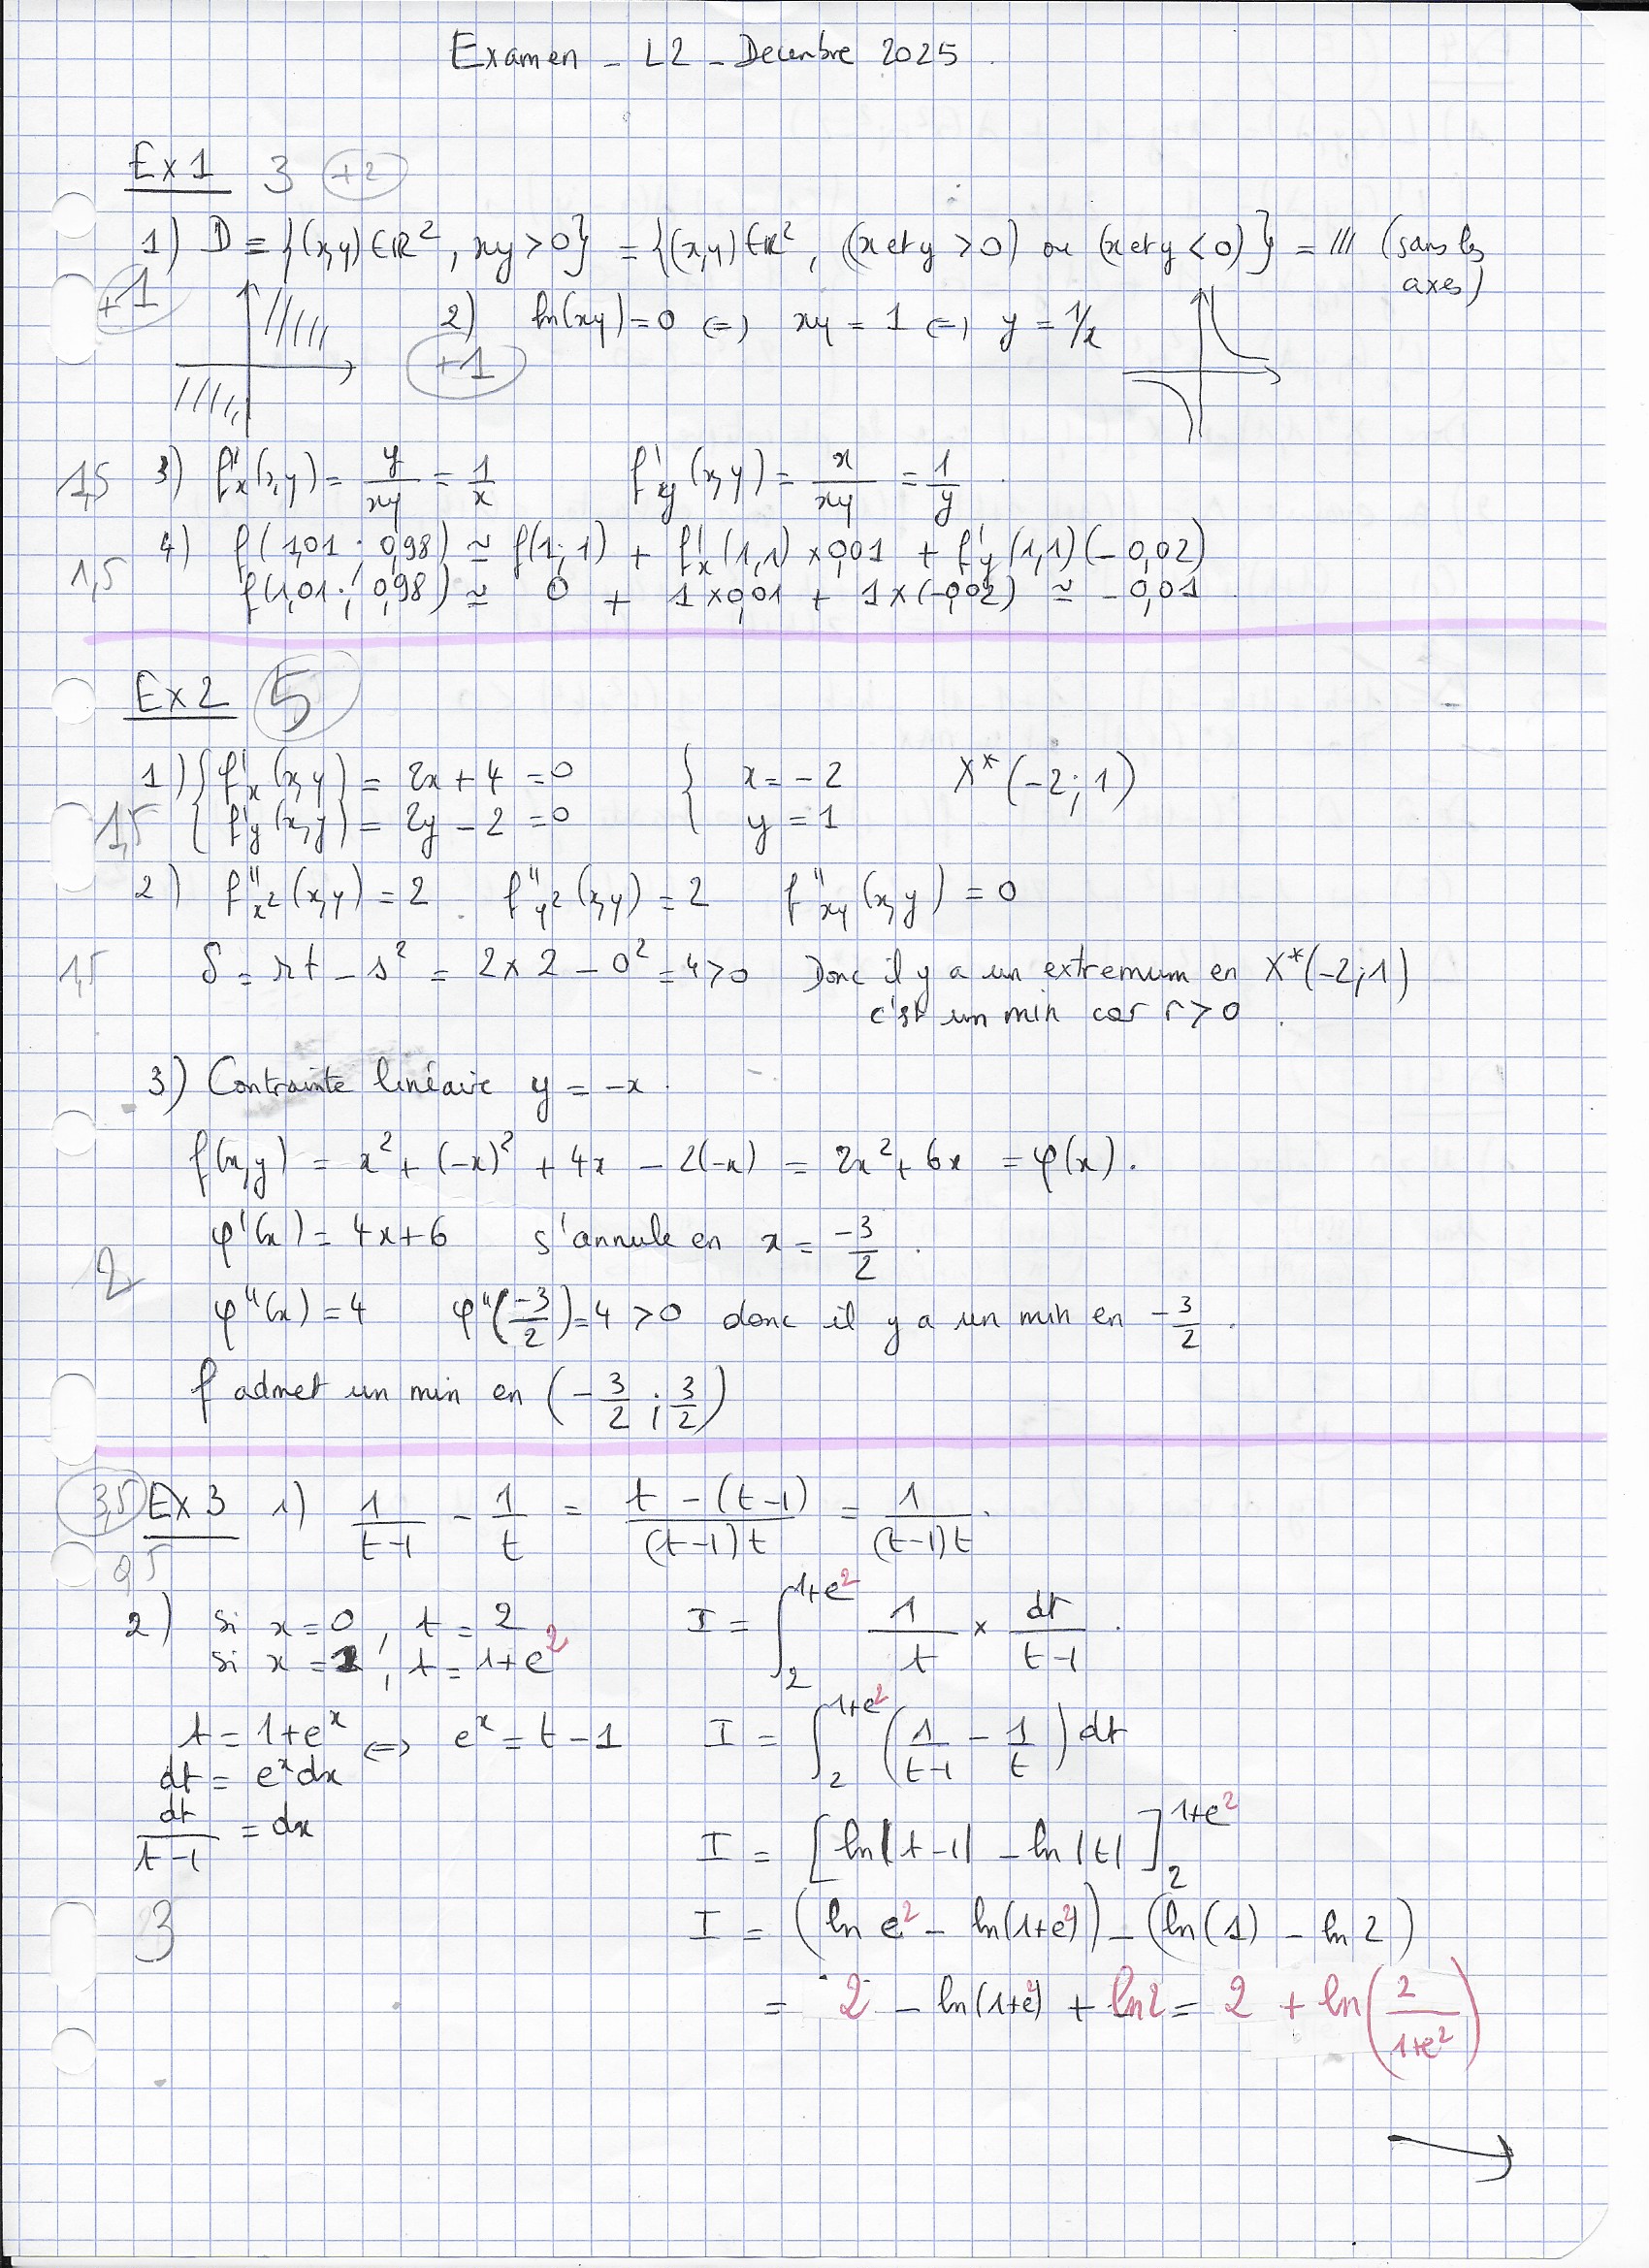 Examen - L2 - Decembre 2025.
Ex 1 3 +2
1) D = {(x,y) ∈ ℝ², xy > 0} = {(x,y) ∈ ℝ², (x et y > 0) ou (x et y < 0)} = /// (sans les axes)
+1
2) ln(xy) = 0 (=) xy = 1 (=) y = 1/x
+1
1,5 3) f'x(x,y) = y/xy = 1/x f'y(x,y) = x/xy = 1/y.
4) f(1,01 ; 0,98) ≃ f(1;1) + f'x(1,1) × 0,01 + f'y(1,1)(-0,02)
1,5 f(1,01 ; 0,98) ≃ 0 + 1×0,01 + 1×(-0,02) ≃ -0,01
Ex 2 5
1) { f'x(x,y) = 2x + 4 = 0 { x = -2 X*(-2;1)
1,5 { f'y(x,y) = 2y - 2 = 0 { y = 1
2) f''x²(x,y) = 2. f''y²(x,y) = 2 f''xy(x,y) = 0
1,5 δ = rt - s² = 2×2 - 0² = 4 > 0 Donc il y a un extremum en X*(-2;1)
c'st un min car r > 0.
3) Contrainte linéaire y = -x.
f(x,y) = x² + (-x)² + 4x - 2(-x) = 2x² + 6x = φ(x).
φ'(x) = 4x+6 s'annule en x = -3/2.
2
φ''(x) = 4 φ''(-3/2) = 4 > 0 donc il y a un min en -3/2.
f admet un min en (-3/2 ; 3/2)
3,5 Ex 3 1) 1/(t-1) - 1/t = (t - (t-1))/((t-1)t) = 1/((t-1)t).
0,5
2) si x = 0, t = 2 I = ∫₂^(1+e²) 1/t × dt/(t-1).
si x = 2, t = 1+e²
t = 1+e^x <=> e^x = t - 1 I = ∫₂^(1+e²) (1/(t-1) - 1/t) dt
dt = e^x dx
dt/(t-1) = dx
I = [ln|t-1| - ln|t|]₂^(1+e²)
3 I = (ln e² - ln(1+e²)) - (ln(1) - ln 2)
= 2 - ln(1+e²) + ln2 = 2 + ln(2/(1+e²))